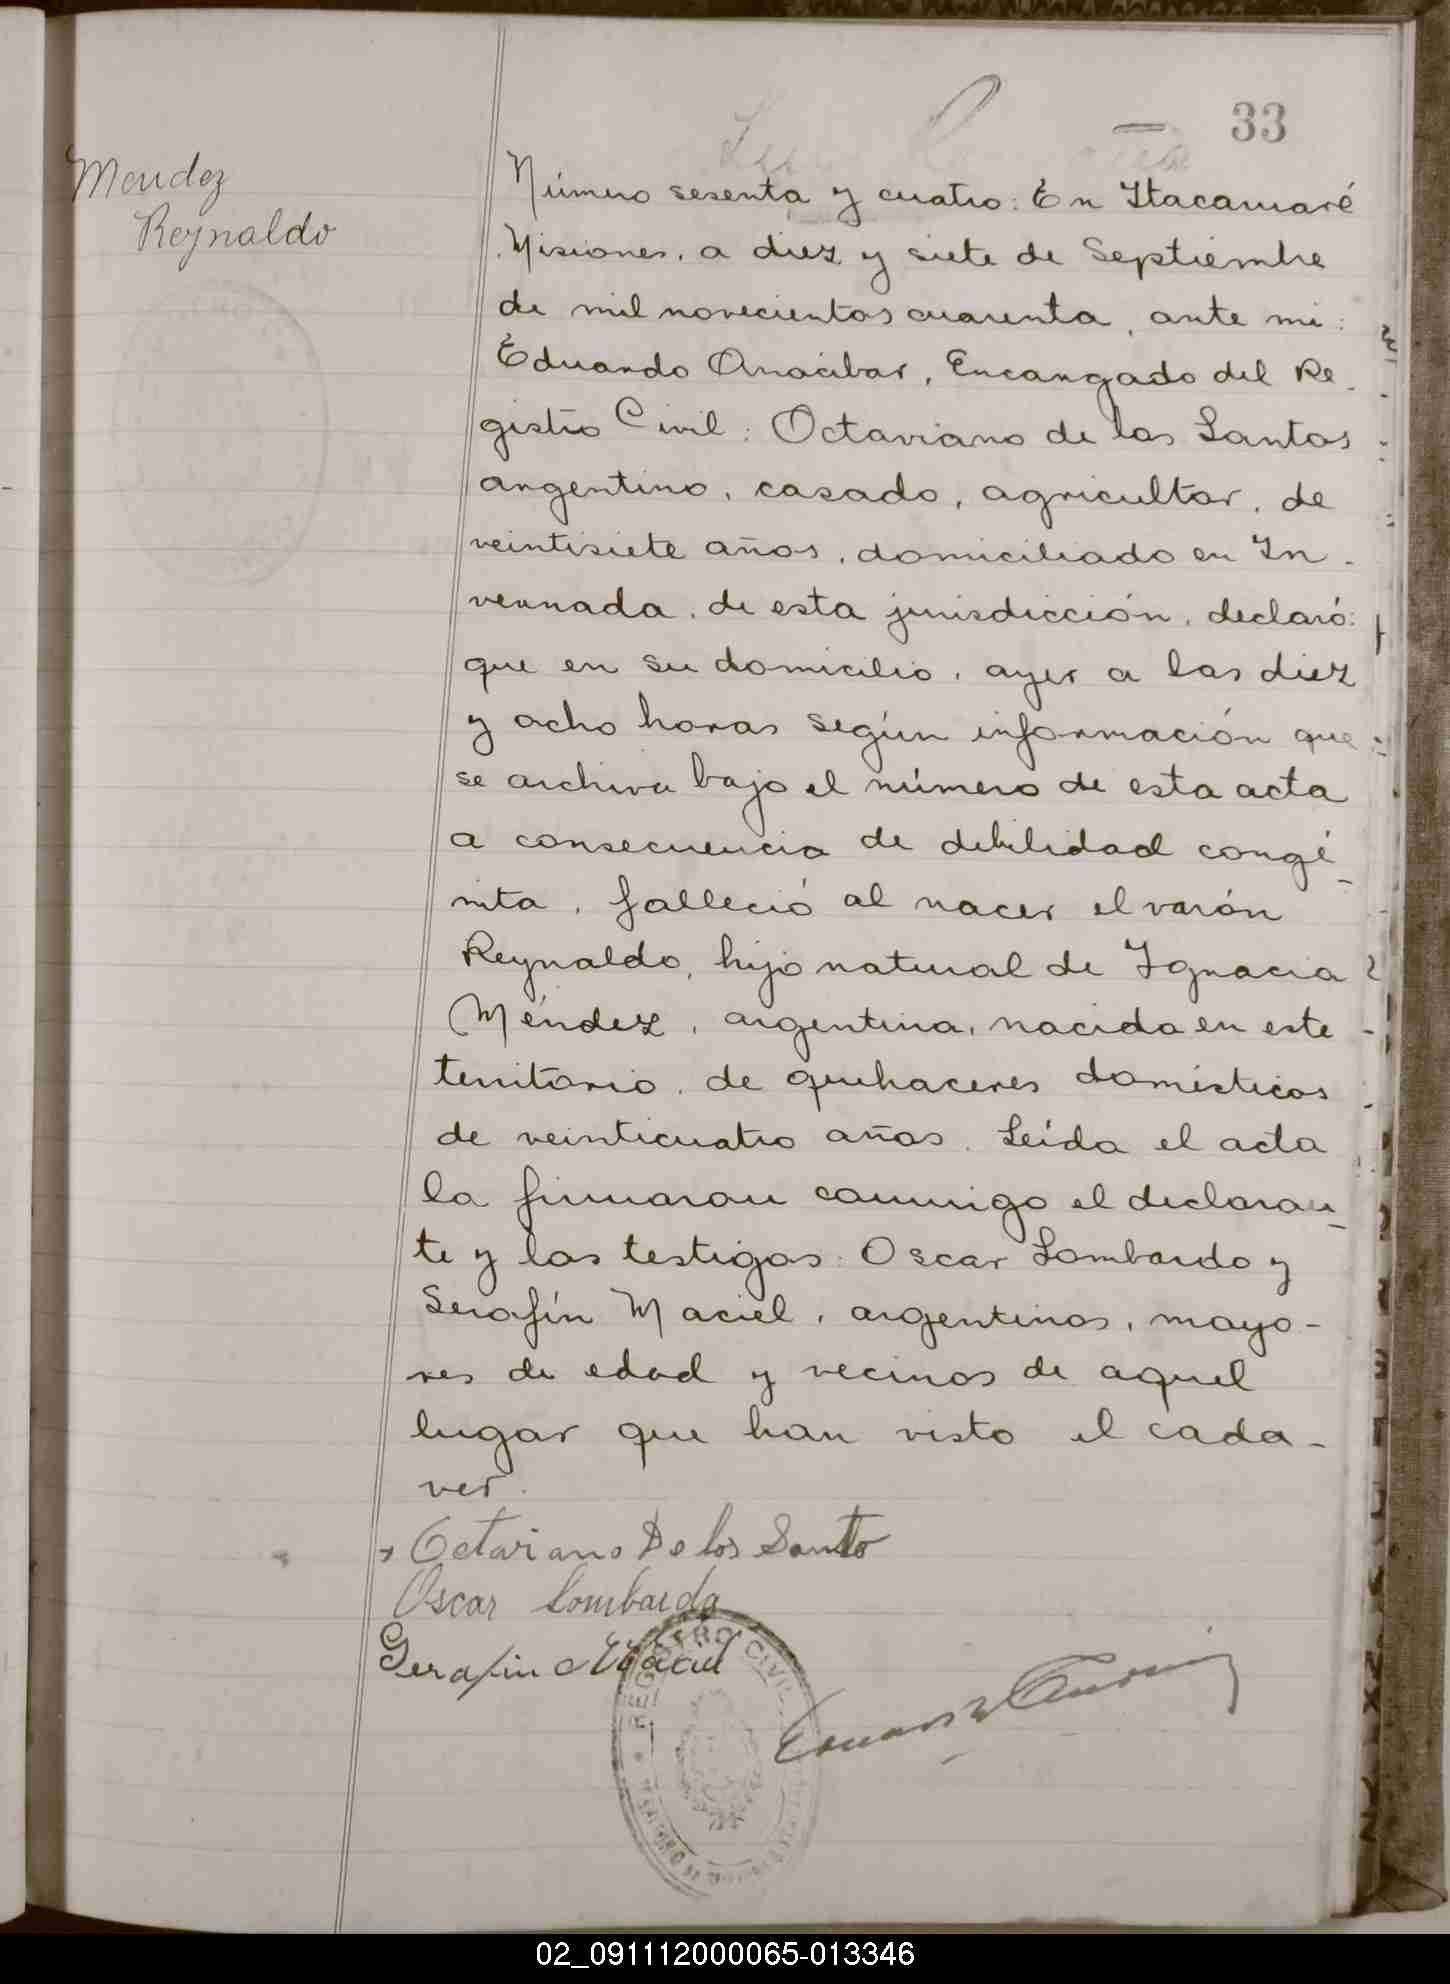 33
Mendez
Reynaldo
Número sesenta y cuatro: En Itacaruaré
Misiones, a diez y siete de Septiembre
de mil novecientos cuarenta, ante mi:
Eduardo Anacibar, Encargado del Re-
gistro Civil: Octaviano de los Santos
argentino, casado, agricultor, de
veintisiete años, domiciliado en In-
vernada, de esta jurisdicción, declaró:
que en su domicilio, ayer a las diez
y ocho horas según información que
se archiva bajo el número de esta acta
a consecuencia de debilidad congé-
nita, falleció al nacer el varón
Reynaldo, hijo natural de Ignacia
Méndez, argentina, nacida en este
territorio, de quehaceres domésticos
de veinticuatro años. Leída el acta
la firmaron conmigo el declaran-
te y los testigos: Oscar Lombardo y
Serafín Maciel, argentinos, mayo-
res de edad y vecinos de aquel
lugar que han visto el cada-
ver.
Octaviano De los Santo
Oscar Lombardo
Serafin Maciel
REGISTRO CIVIL
02_091112000065-013346